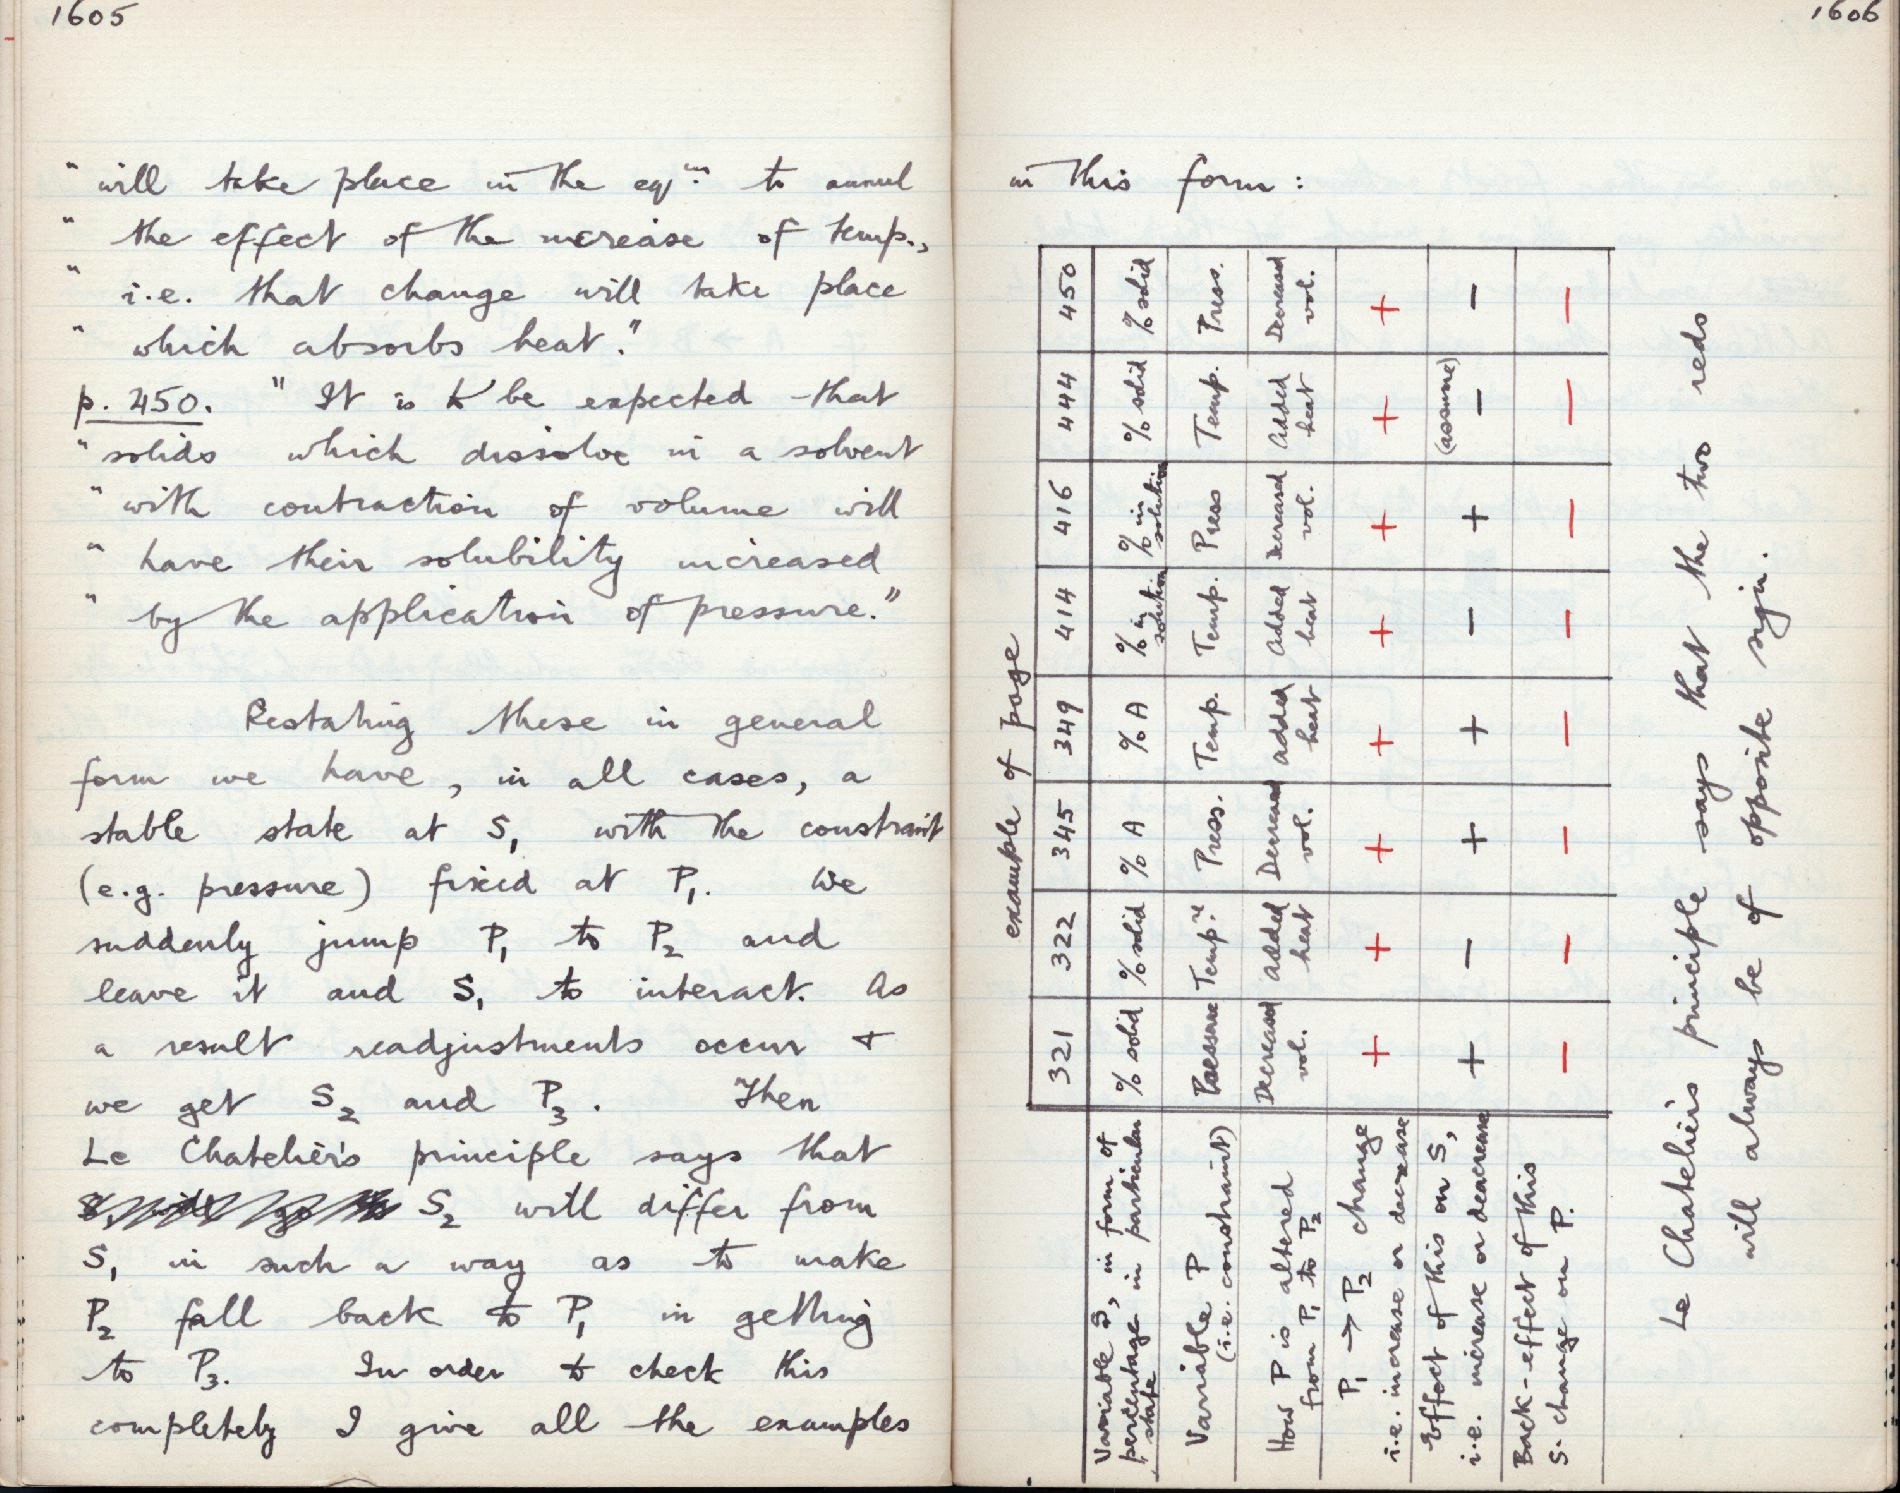 1605
" will take place in the eqᵐ. to annul
" the effect of the increase of temp.,
" i.e. that change will take place
" which absorbs heat."
p. 450. " It is to be expected that
" solids which dissolve in a solvent
" with contraction of volume will
" have their solubility increased
" by the application of pressure."
Restating these in general
form we have, in all cases, a
stable state at S₁ with the constraint
(e.g. pressure) fixed at P₁. We
suddenly jump P₁ to P₂ and
leave it and S₁ to interact. As
a result readjustments occur &
we get S₂ and P₃. Then
Le Chatelier's principle says that
S₂ will differ from
S₁ in such a way as to make
P₂ fall back to P₁ in getting
to P₃. In order to check this
completely I give all the examples
1606
in this form:
example of page
321 322 345 349 414 416 444 450
Variable S, in form of percentage in particular state
% solid % solid % A % A % in solution % in solution % solid % solid
Variable P (i.e. constraint)
Pressure Tempʳᵉ Press. Temp. Temp. Press Temp. Press.
How P is altered from P₁ to P₂
Decreased vol. Added heat Decreased vol. Added heat Added heat Decreased vol. Added heat Decreased vol.
P₁ → P₂ change i.e. increase or decrease
+ + + + + + + +
Effect of this on S, i.e. increase or deacrease
+ − + + − + (assume) − −
Back-effect of this S. change on P.
− − − − − − − −
Le Chatelier's principle says that the two reds
will always be of opposite sign.